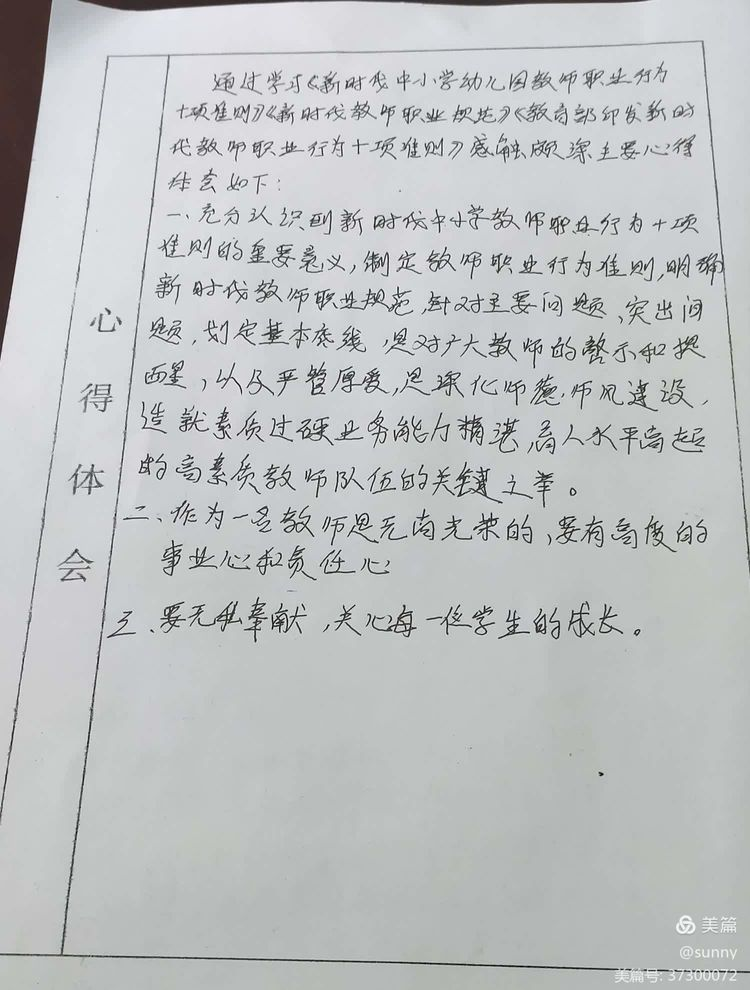 心得体会
通过学习《新时代中小学幼儿园教师职业行为
十项准则》《新时代教师职业规范》《教育部印发新时
代教师职业行为十项准则》感触颇深主要心得
体会如下：
一、充分认识到新时代中小学教师职业行为十项
准则的重要意义，制定教师职业行为准则，明确
新时代教师职业规范，针对主要问题、突出问
题，划定基本底线，是对广大教师的警示和提
醒，以及严管厚爱，是深化师德师风建设，
造就素质过硬业务能力精湛，育人水平高超
的高素质教师队伍的关键之举。
二、作为一名教师是无尚光荣的，要有高度的
事业心和责任心
三、要无私奉献，关心每一位学生的成长。
美篇
@sunny
美篇号: 37300072